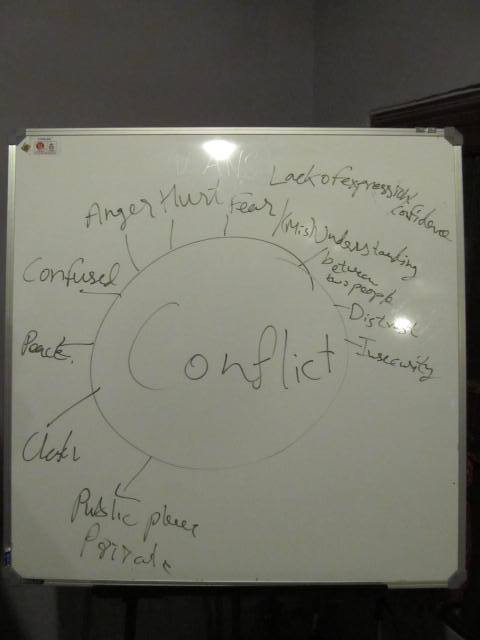 Lack of expression/
confidence
Anger Hurt Fear
(Mis)Understanding
between
two people
Confused
Distrust
Conflict
Peace
Insecurity
Clash
Public place
Private